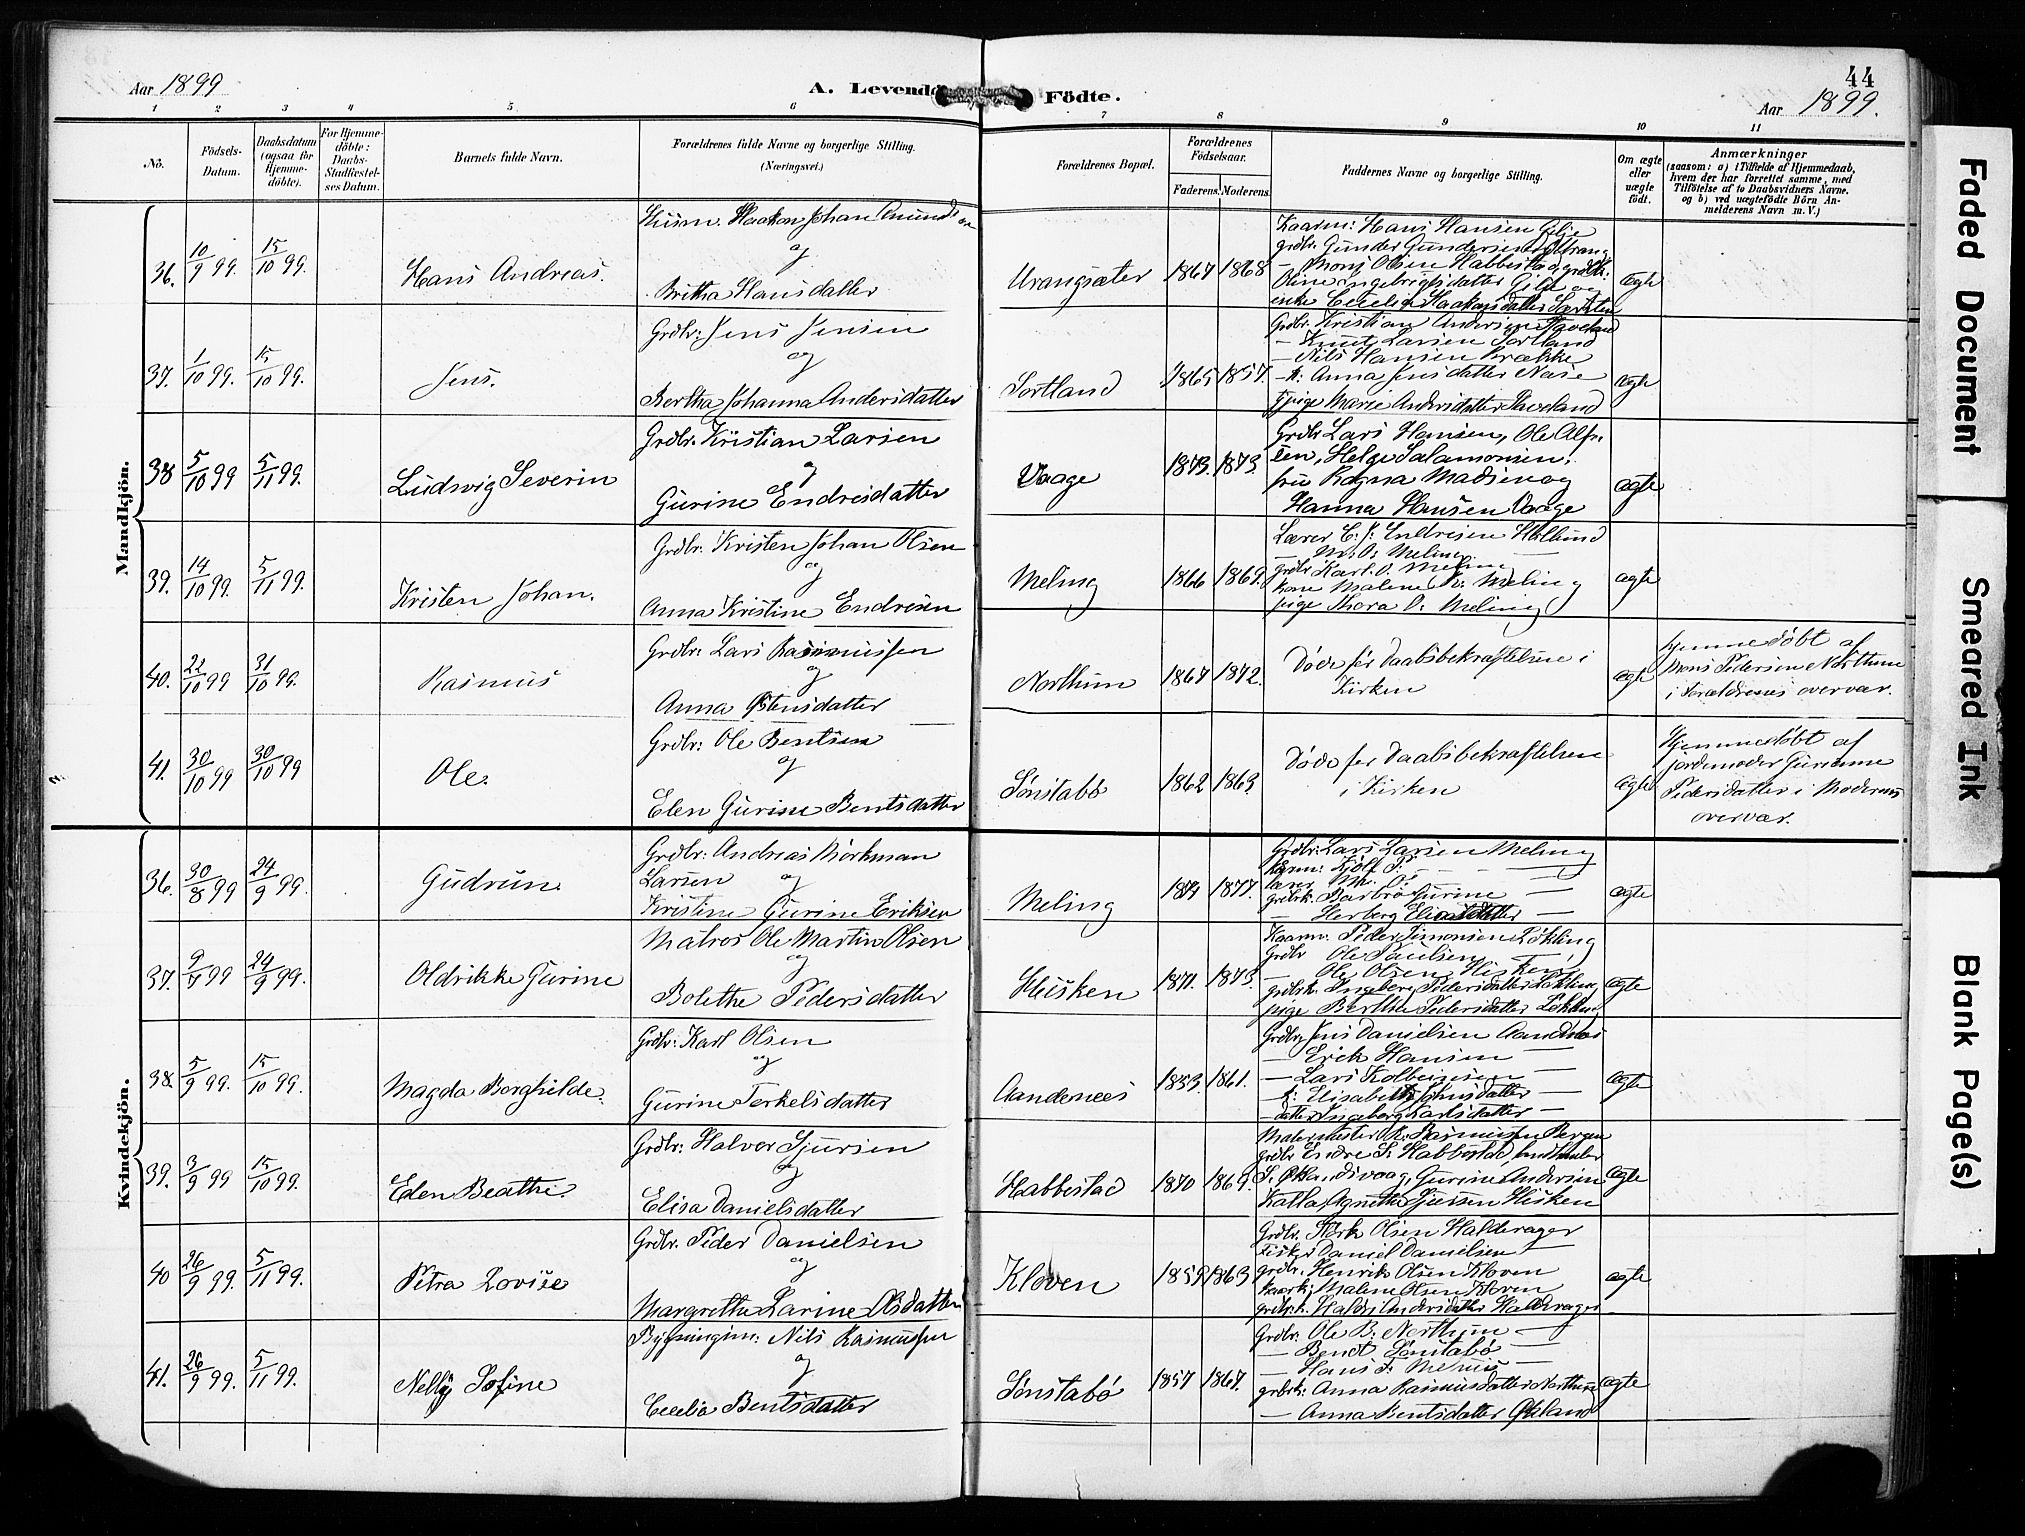 Aar 1899
A. Levende
Födte.
44
Aar 1899.
1 2 3 4 5 6 7 8 9 10 11
No.
Födsels-Datum.
Daabsdatum (ogsaa för Hjemme-döbte).
For Hjemme-döbte: Daabs-Stadfæstel-ses Datum.
Barnets fulde Navn.
Forældrenes fulde Navne og borgerlige Stilling.
(Næringsvei.)
Forældrenes Bopæl.
Forældrenes Födselsaar.
Faderens. Moderens.
Faddernes Navne og borgerlige Stilling.
Om ægte eller uægte födt.
Anmærkninger
(saasom: a) i Tilfælde af Hjemmedaab,
hvem der har forrettet samme, med
Tilföielse af to Daabsvidners Navne.
og b) ved uægtefödte Börn An-
melderens Navn m. V.)
Mandkjön.
36. 10/9 99. 15/10 99. Hans Andreas.
Husm. Haakon Johan Amundsen
og
Britha Hansdatter
Urangsæter 1867 1868
Kaarm: Hans Hansen Gilje
grdbr. Gunder Gundersen
Mons Olsen Habbestad, grdbk:
Oline Ingebrigtsdatter Gilje og
enke Haakonsdatter
ægte
37. 1/10 99. 15/10 99. Jens.
Grdbr: Jens Jensen
og
Bertha Johanna Andersdatter
Sortland 1865 1857.
Grdbr. Kristian Andersen
— Knut Larsen Sortland
— Nils Hansen Brække
— k: Anna Jensdatter Nase
pige Marie Andersdatter
ægte
38 5/10 99 5/11 99. Ludvig Severin
Grdbr. Kristian Larsen
og
Gurine Endresdatter
Vaage 1873. 1873.
Grdbr Lars Hansen, Ole Alf-
sen, Helge Salamonsen,
fru Ragna Madsen og
Hanna Hansen Vaage
ægte
39. 14/10 99. 5/11 99. Kristen Johan.
Grdbr: Kristen Johan Olsen
og
Anna Kristine Endresen
Meling 1866 1869.
Lærer E. J. Endresen Hollund
— M. O. Meling —
grdbr Karl O. Meling
kone Malene K: Meling
pige Thora O: Meling
ægte
40. 22/10 99 31/10 99. Rasmus
Grdbr: Lars Rasmussen
og
Anna Østensdatter
Northun 1867 1872.
Døde før Daabsbekræftelsen i
Kirken
ægte
Hjemmedøbt af
Mons Pedersen Northun
i Forældrenes overvær.
41. 30/10 99 30/10 99 Ole.
Grdbr: Ole Bentsen
og
Elen Gurine Bentsdatter
Sønstabø 1862 1863.
Døde før Daabsbekræftelsen
i Kirken
ægte
Hjemmedøbt af
jordemoder Gurianne
Pedersdatter i Moderens
overvær.
Kvindekjön.
36. 30/8 99 24/9 99. Gudrun
Grdbr: Andreas Mørkman
Larsen og
Kristine Gurine Eriksen
Meling 1877.
Grdbr: Lars Larsen Meling
lærer M. O.
grdbrk. Barbro Gurine —
— Herborg Elisabeth —
ægte
37. 24/9 99. Oldrikke Gurine
Matros Ole Martin Olsen
og
Bolethe Pedersdatter
Hisken 1871. 1873.
Kaarm. Peder Simonsen Løkling
Grdbr Ole Paulsen —
— Ole Olsen Hisken
grdbrk. Ingeborg Pedersdatter
pige Berthe Pedersdatter
ægte
38. 5/9 99. 15/10 99. Magda Borghilde.
Grdbr: Karl Olsen
og
Gurine Terkelsdatter
Aandernees 1853. 1861.
Grdbr Jens Danielsen Aandernæs
— Erik Hansen —
— Lars Kolbeinsen —
— k: Elisabeth —
datter Ingeborg Karlsdatter —
ægte
39. 3/9 99 15/10 99. Elen Beathe
Grdbr: Halvor Sjursen
og
Elisa Danielsdatter
Habbestad 1870 1869.
Malermester R. Rasmussen Bergen
grdbr Endre S. Habbestad, landhandler
S. Øklandsvaag, Gurine Andersen
Katla, Agnethe Sjursen Hisken
ægte
40 26/9 99. 5/11 99. Petra Lovise
Grdbr. Peder Danielsen
og
Margrethe Larine Olsdatter
Kloven 1859 1863
Grdbr. Størk Olsen Halderager
Fisker Daniel Danielsen —
grdbr. Henrik Olsen Kloven
Malene Olsen Kloven
grdbrk. Andersdatter Halderager
ægte
41. 26/9 99. 5/11 99. Nelly Sofine
Bygningsm: Nils Rasmussen
og
Cecelia Bentsdatter
Sønstabø 1857 1867.
Grdbr: Ole B. Northun —
— Bendt Sønstabø —
— Hans F. —
grdbrk: Anna Rasmusdatter Northun
— Anna Bentsdatter Økland
ægte
Faded Document
Smeared Ink
Blank Page(s)